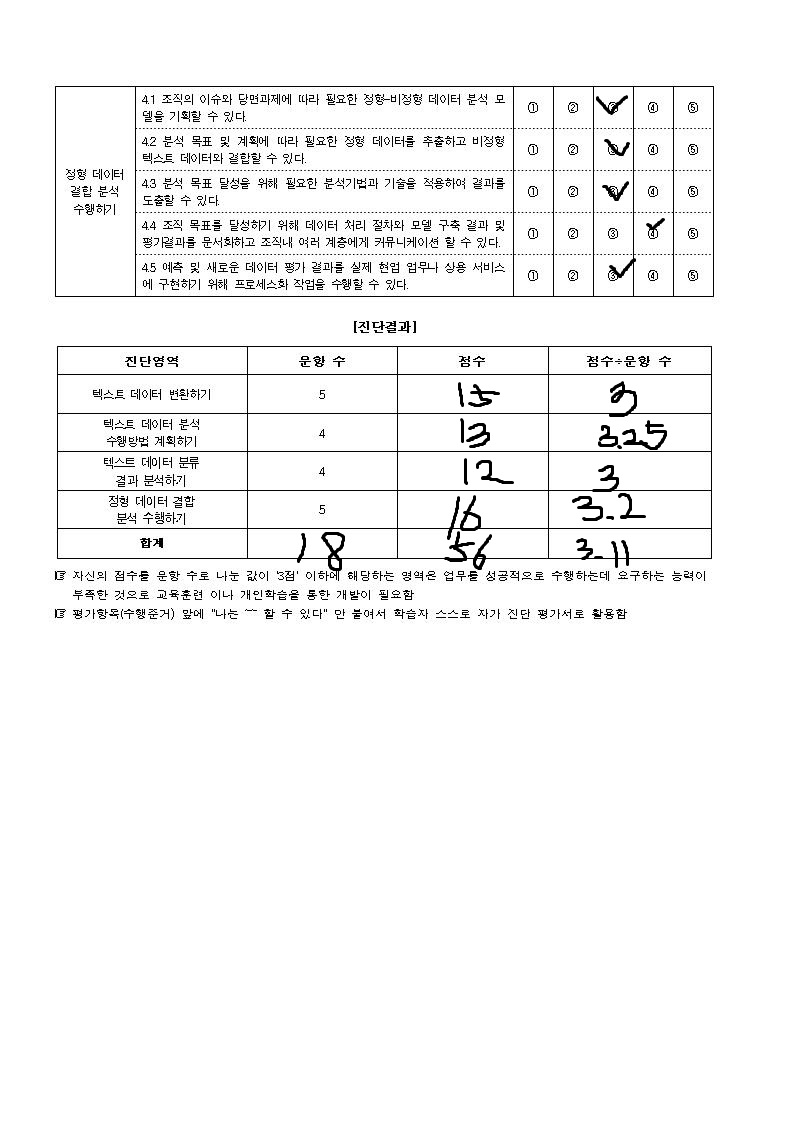 4.1 조직의 이슈와 당면과제에 따라 필요한 정형-비정형 데이터 분석 모
델을 기획할 수 있다.
① ② ③ ④ ⑤
4.2 분석 목표 및 계획에 따라 필요한 정형 데이터를 추출하고 비정형
텍스트 데이터와 결합할 수 있다.
① ② ③ ④ ⑤
정형 데이터
결합 분석
수행하기
4.3 분석 목표 달성을 위해 필요한 분석기법과 기술을 적용하여 결과를
도출할 수 있다.
① ② ③ ④ ⑤
4.4 조직 목표를 달성하기 위해 데이터 처리 절차와 모델 구축 결과 및
평가결과를 문서화하고 조직내 여러 계층에게 커뮤니케이션 할 수 있다.
① ② ③ ④ ⑤
4.5 예측 및 새로운 데이터 평가 결과를 실제 현업 업무나 상용 서비스
에 구현하기 위해 프로세스화 작업을 수행할 수 있다.
① ② ③ ④ ⑤
[진단결과]
진단영역 문항 수 점수 점수÷문항 수
텍스트 데이터 변환하기 5 15 3
텍스트 데이터 분석
수행방법 계획하기 4 13 3.25
텍스트 데이터 분류
결과 분석하기 4 12 3
정형 데이터 결합
분석 수행하기 5 16 3.2
합계 18 56 3.11
☞ 자신의 점수를 문항 수로 나눈 값이 '3점' 이하에 해당하는 영역은 업무를 성공적으로 수행하는데 요구하는 능력이
부족한 것으로 교육훈련 이나 개인학습을 통한 개발이 필요함
☞ 평가항목(수행준거) 앞에 "나는 ~~ 할 수 있다" 만 붙여서 학습자 스스로 자가 진단 평가서로 활용함